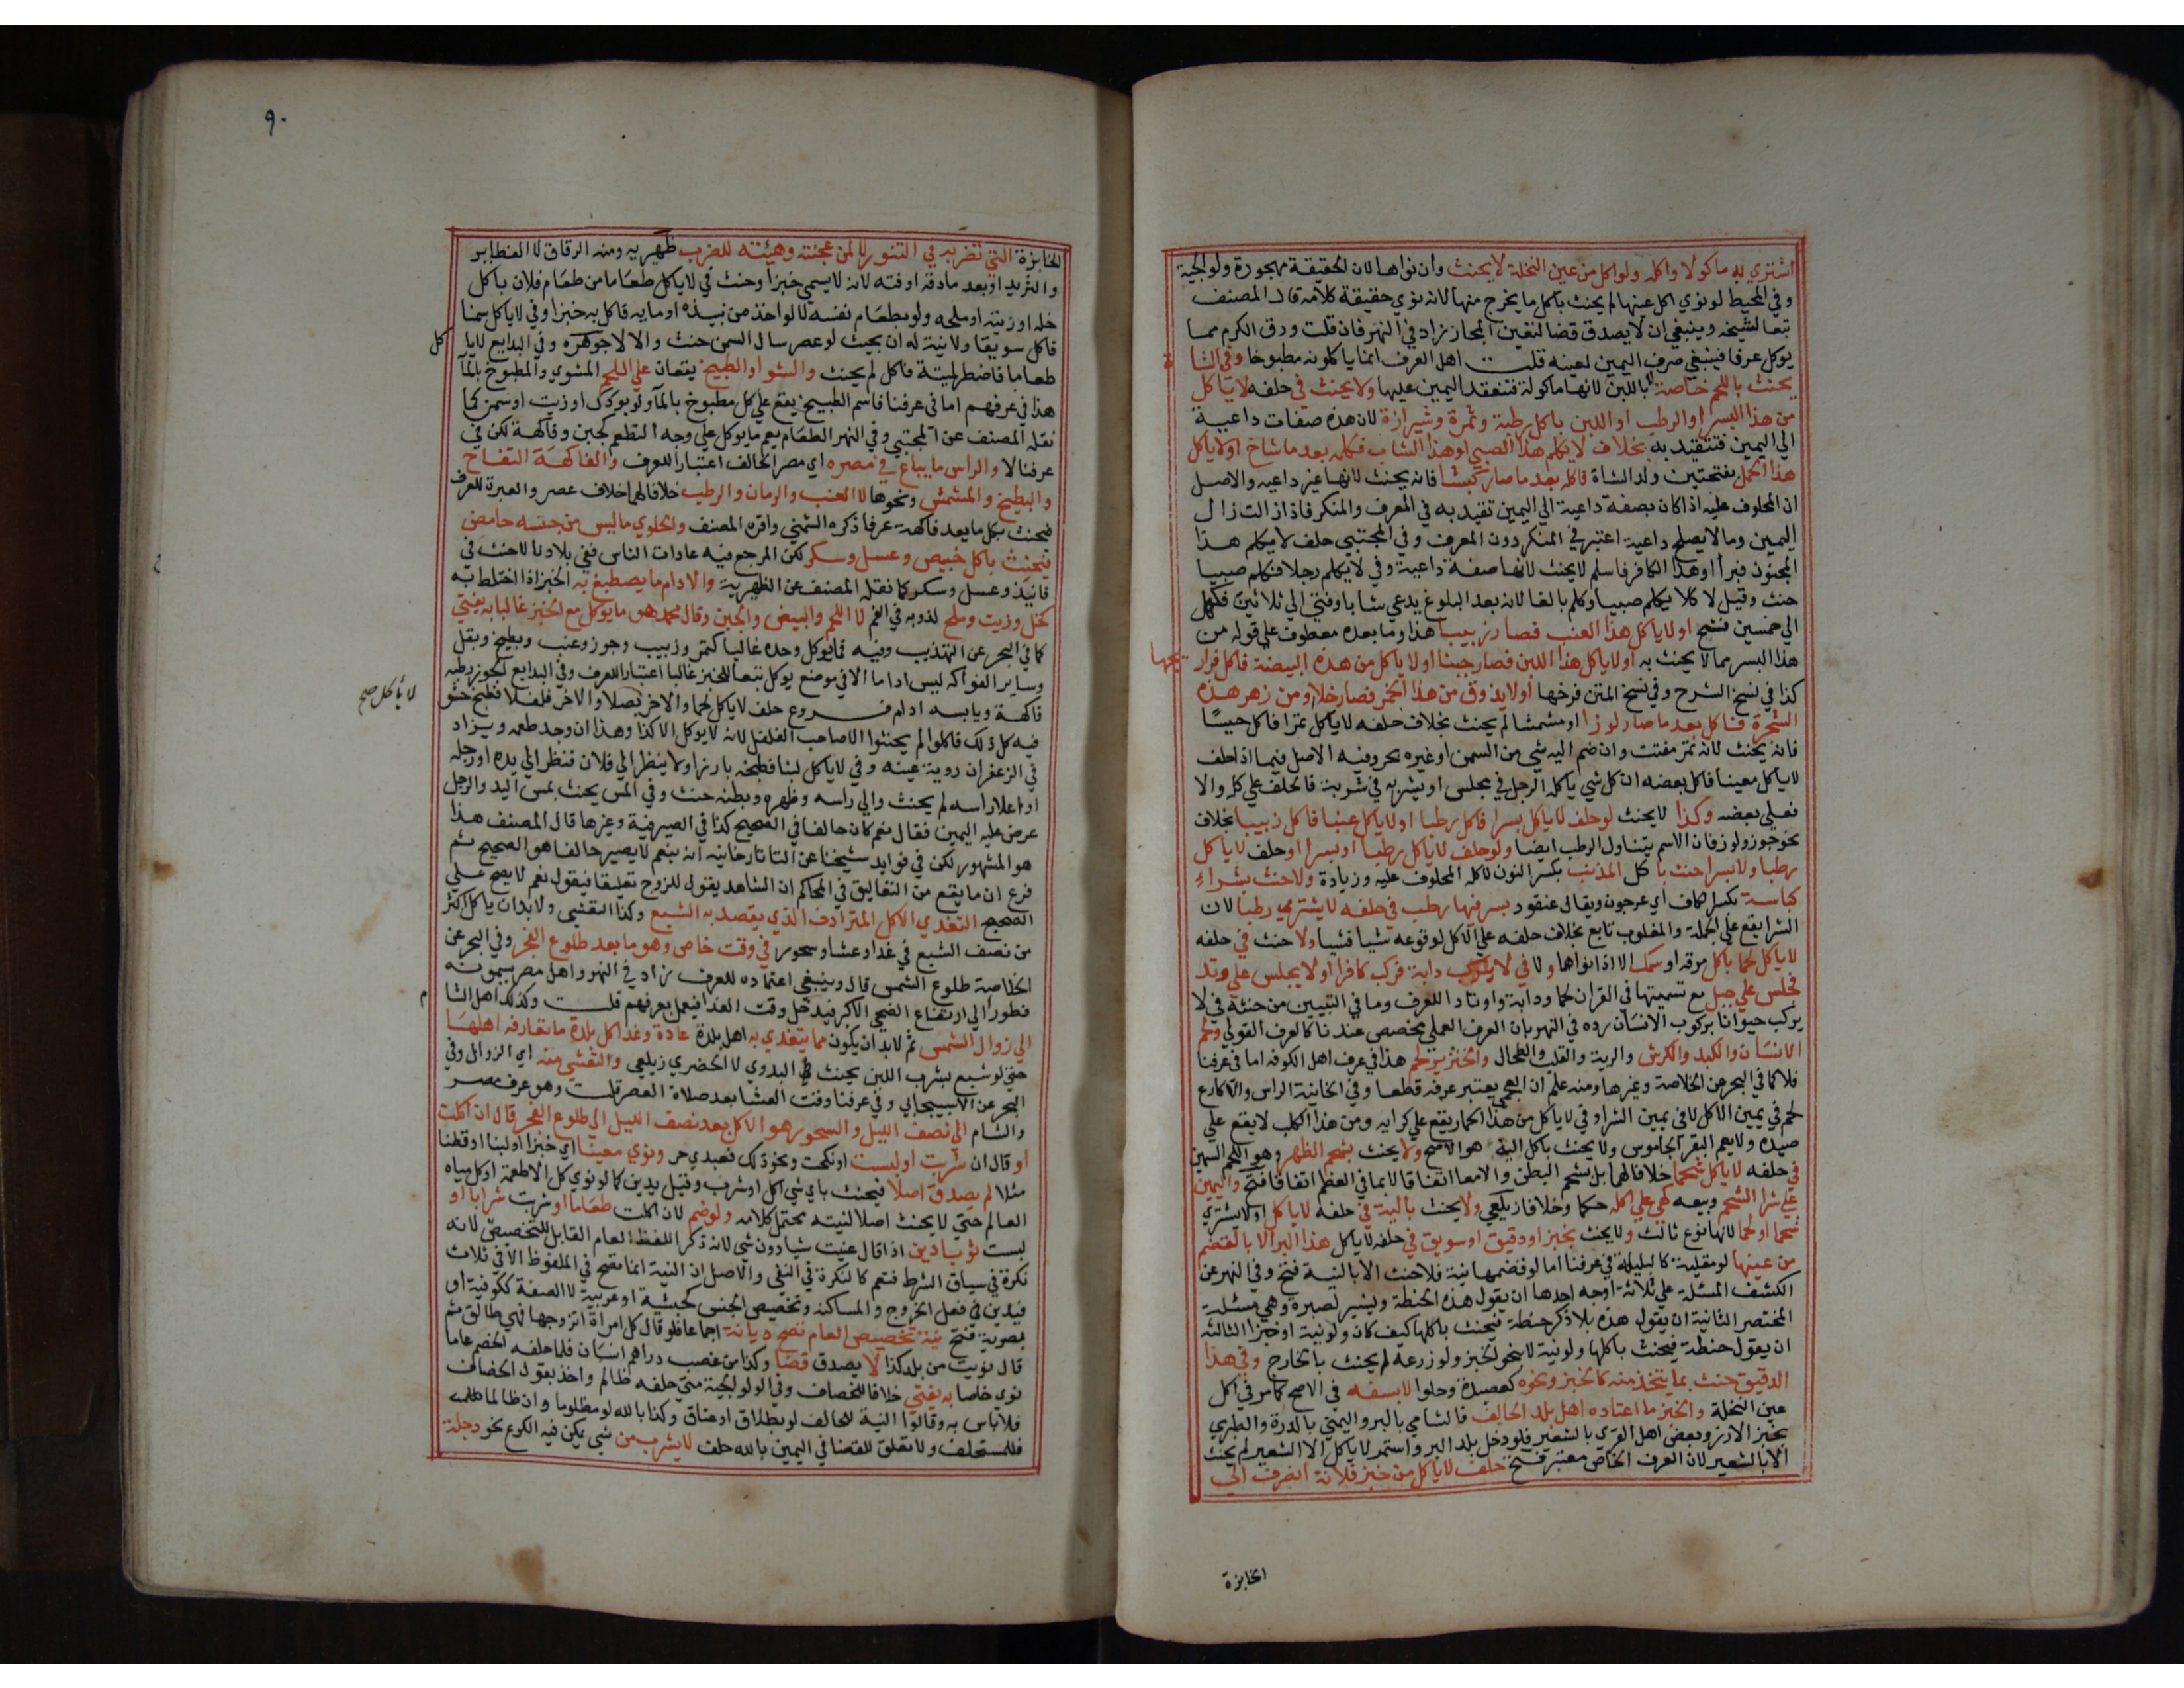 اشتري به ماكولا واكله ولو اكل من عين النخلة لا يحنث وان نواها لان الحقيقة مهجورة ولوالجية
وفي المحيط لو نوي اكل عينها لم يحنث باكل ما يخرج منها لانه نوي حقيقة كلامه قال المصنف
تبعا لشيخه وينبغي ان لا يصدق قضا لتعين المجاز زاد في النهر فان قلت ورق الكرم مما
يوكل عرفا فينبغي صرف اليمين لعينه قلت اهل العرف انما ياكلونه مطبوخا وفي الشا
ة
يحنث باللحم خاصة لا باللبن لانها ماكولة فتنعقد اليمين عليها ولا يحنث في حلفه لا ياكل
من هذا البسر او الرطب او اللبن باكل رطبة وتمرة وشيرازة لان هذه صفات داعية
الي اليمين فتتقيد به بخلاف لا يكلم هذا الصبي او هذا الشاب فكلمه بعد ما شاخ او لا ياكل
هذا الحمل بفتحتين ولد الشاة فاكله بعد ما صار كبشا فانه يحنث لانها غير داعيه والاصل
ان المحلوف عليه اذا كان بصفة داعية الي اليمين تقيد به في المعرف والمنكر فاذا زالت زال
اليمين وما لا يصلح داعية اعتبر في المنكر دون المعرف وفي المجتبي حلف لا يكلم هذا
المجنون فبرأ او هذا الكافر فاسلم لا يحنث لانها صفة داعية وفي لا يكلم رجلا فكلم صبيا
حنث وقيل لا كلا يكلم صبيا وكلم بالغا لانه بعد البلوغ يدعي شابا وفتي الي ثلاثين فكهل
الي خمسين فشيخ او لا ياكل هذا العنب فصار زبيبا هذا وما بعده معطوف علي قوله من
هذا البسر مما لا يحنث به او لا ياكل هذا اللبن فصار جبنا او لا ياكل من هذه البيضة فاكل فرار
يجها
كذا في نسخ الشرح وفي نسخ المتن فرخها او لا يذوق من هذا الخمر فصار خلا او من زهر هذه
الشجرة فاكل بعد ما صار لوزا او مشمشا لم يحنث بخلاف حلفه لا ياكل تمرا فاكل حيسا
فانه يحنث لانه تمر مفتت وان ضم اليه شي من السمن او غيره بحر وفيه الاصل فيما اذا حلف
لا ياكل معينا فاكل بعضه ان كل شي ياكله الرجل في مجلس او يشربه في شربة فالحلف علي كله والا
فعلي بعضه وكذا لا يحنث لو حلف لا ياكل بسرا فاكل رطبا او لا ياكل عنبا فاكل زبيبا بخلاف
نحو جوز ولوز فان الاسم يتناول الرطب ايضا ولو حلف لا ياكل رطبا او بسرا او حلف لا ياكل
رطبا ولا بسرا حنث باكل المذنب بكسر النون لاكله المحلوف عليه وزيادة ولا حنث بشراء
كباسة بكسر الكاف اي عرجون ويقال عنقود بسر فيها رطب في حلفه لا يشتري رطبا لان
الشرا يقع علي الجملة والمغلوب تابع بخلاف حلفه علي الاكل لوقوعه شيا فشيا ولا حنث في حلفه
لا ياكل لحما باكل مرقه او سمك الا اذا نواهما ولا في لا يركب دابة فركب كافرا او لا يجلس علي وتد
فجلس علي جبل مع تسميتها في القران لحما ودابة واوتادا للعرف وما في التبيين من حنثه في لا
يركب حيوانا بركوب الانسان رده في النهر بان العرف العملي مخصص عندنا كالعرف القولي ولحم
الانسان والكبد والكرش والرية والقلب والطحال والخنزير لحم هذا في عرف اهل الكوفة اما في عرفنا
فلا كما في البحر عن الخلاصة وغيرها ومنه علم ان العجمي يعتبر عرفه قطعا وفي الخانية الراس والاكارع
لحم في يمين الاكل لا في يمين الشرا وفي لا ياكل من هذا الحمار يقع علي كرايه ومن هذا الكلب لا يقع علي
صيده ولا يعم البقر الجاموس ولا يحنث باكل النيه هو الاصح ولا يحنث بشحم الظهر وهو اللحم السمين
في حلفه لا ياكل شحما خلافا لهما بل بشحم البطن والامعا اتفاقا لا بما في العظم اتفاقا فتح واليمين
علي شرا الشحم وبيعه كهي علي اكله حكما وخلافا زيلعي ولا يحنث بالية في حلفه لا ياكل او لا يشتري
شحما او لحما لانها نوع ثالث ولا يحنث بخبز او دقيق او سويق في حلفه لا ياكل هذا البر الا بالقضم
من عينها لو مقلية كالبليلة في عرفنا اما لو قضمها نية فلا حنث الا بالنية فتح وفي النهر عن
الكشف المسئلة علي ثلاثة اوجه احدها ان يقول هذه الحنطة ويشير لصبرة وهي مسئلة
المختصر الثانية ان يقول هذه بلا ذكر حنطة فيحنث باكلها كيف كان ولو نية او خبزا الثالثه
ان يقول حنطة فيحنث باكلها ولو نية لا بنحو الخبز ولو زرعة لم يحنث بالخارج وفي هذا
الدقيق حنث بما يتخذ منه كالخبز ونحوه كعصيدة وحلوا لا بسفه في الاصح كما مر في اكل
عين النخلة والخبز ما اعتاده اهل بلد الحالف فالشامي بالبر واليمني بالذرة والطبري
بخبز الارز وبعض اهل القري بالشعير فلو دخل بلد البر واستمر لا ياكل الا الشعير لم يحنث
الا بالشعير لان العرف الخاص معتبر فتح حلف لا ياكل من خبز فلانة انصرف الي
الخابزة
٩٠
الخابزة التي تضربه في التنور لا لمن عجنته وهيئته للضرب ظهيريه ومنه الرقاق لا القطاير
والثريد او بعد ما دقه او فته لانه لا يسمي خبزا وحنث في لا ياكل طعاما من طعام فلان باكل
خله او زيته او ملحه ولو بطعام نفسه لا لو اخذ من نبيذه او مايه فاكل به خبزا وفي لا ياكل سمنا
فاكل سويقا ولا نية له ان بحيث لو عصر سال السمن حنث والا لا جوهره وفي البدايع لا يا
كل
طعاما فاضطر لميتة فاكل لم يحنث والشوا والطبيخ يقعان علي اللحم المشوي والمطبوخ بالمآ
هذا في عرفهم اما في عرفنا فاسم الطبيخ يقع علي كل مطبوخ بالمآ ولو بودك او زيت او سمن كما
نقله المصنف عن المجتبي وفي النهر الطعام يعم ما يوكل علي وجه التطعم كجبن وفاكهة لكن في
عرفنا لا والراس ما يباع في مصره اي مصر الحالف اعتبارا للعرف والفاكهة التفاح
والبطيخ والمشمش ونحوها لا العنب والرمان والرطب خلافا لهما خلاف عصر والعبرة للعرف
فيحنث بكل ما يعد فاكهة عرفا ذكره الشمني واقره المصنف والحلوي ما ليس من جنسه حامض
فيحنث باكل خبيص وعسل وسكر لكن المرجع فيه عادات الناس ففي بلادنا لا حنث في
فانيذ وعسل وسكر كما نقله المصنف عن الظهيرية والادام ما يصطبغ به الخبز اذا اختلط به
كخل وزيت وملح لذوبه في الفم لا اللحم والبيض والجبن وقال محمد هو ما يوكل مع الخبز غالبا به يفتي
كما في البحر عن التهذيب وفيه فما يوكل وحده غالبا كتمر وزبيب وجوز وعنب وبطيخ وبقل
وساير الفواكه ليس اداما الا في موضع يوكل تبعا للخبز غالبا اعتبارا للعرف وفي البدايع الجوز رطبه
فاكهة ويابسه ادام فروع حلف لا ياكل لحما والاخر بصلا والاخر فلفلا فطبخ حشو
لا يأكل صح
فيه كل ذلك فاكلوا لم يحنثوا الا صاحب الفلفل لانه لا يوكل الا كذا وهذا ان وجد طعمه ويزاد
في الزعفران روية عينه وفي لا ياكل لبنا فطبخه بارز او لا ينظر الي فلان فنظر الي يده او رجله
او اعلا راسه لم يحنث والي راسه وظهره وبطنه حنث وفي المس يحنث بمس اليد والرجل
عرض عليه اليمين فقال نعم كان حالفا في الصحيح كذا في الصيرفية وغيرها قال المصنف هذا
هو المشهور لكن في فوايد شيخنا عن التاتارخانيه انه بنعم لا يصير حالفا هو الصحيح ثم
فرع ان ما يقع من التعاليق في المحاكم ان الشاهد يقول للزوج تعليقا فيقول نعم لا يصح علي
الصحيح التغدي الاكل المترادف الذي يقصد به الشبع وكذا التعشي ولا بد ان ياكل اكثر
من نصف الشبع في غدا وعشا وسحور في وقت خاص وهو ما بعد طلوع الفجر وفي البحر عن
الخلاصة طلوع الشمس قال وينبغي اعتماده للعرف زاد في النهر واهل مصر يسمونه
فطورا الي ارتفاع الضحي الاكبر فيدخل وقت الغدا فيعمل بعرفهم قلت وكذلك اهل الشا
م
الي زوال الشمس ثم لا بد ان يكون مما يتغدي به اهل بلدة عادة وغدا كل بلدة ما تعارفه اهلها
حتي لو شبع بشرب اللبن يحنث البدوي لا الحضري زيلعي والتعشي منه اي الزوال وفي
البحر عن الاسبيجابي وفي عرفنا وقت العشا بعد صلاة العصر قلت وهو عرف مصر
والشام الي نصف الليل والسحور هو الاكل بعد نصف الليل الي طلوع الفجر قال ان اكلت
او قال ان شربت او لبست او نكحت ونحو ذلك فعبدي حر ونوي معينا اي خبزا او لبنا او قطنا
مثلا لم يصدق اصلا فيحنث باي شي اكل او شرب وقيل يدين كما لو نوي كل الاطعمة او كل مياه
العالم حتي لا يحنث اصلا لنيته محتمل كلامه ولو ضم لان اكلت طعاما او شربت شرابا او
لبست ثوبا دين اذا قال عنيت شيا دون شي لانه ذكر اللفظ العام القابل للتخصيص لانه
نكرة في سياق الشرط فتعم كالنكرة في النفي والاصل ان النية انما تصح في الملفوظ الا في ثلاث
فيدين في فعل الخروج والمساكنة وتخصيص الجنس كحبشية او عربية لا الصفة ككوفية او
بصرية فتح نية تخصيص العام تصح ديانة اجماعا فلو قال كل امراة اتزوجها فهي طالق ثم
قال نويت من بلد كذا لا يصدق قضا وكذا من غصب دراهم انسان فلما حلفه الخصم عاما
نوي خاصا به يفتي خلافا للخصاف وفي الولوالجية متي حلفه ظالم واخذ بقول الخصاف
فلا باس به وقالوا النية للحالف لو بطلاق او عتاق وكذا بالله لو مظلوما وان ظالما
فللمستحلف ولا تعلق للقضا في اليمين بالله حلف لا يشرب من شي يمكن فيه الكرع نحو دجلة